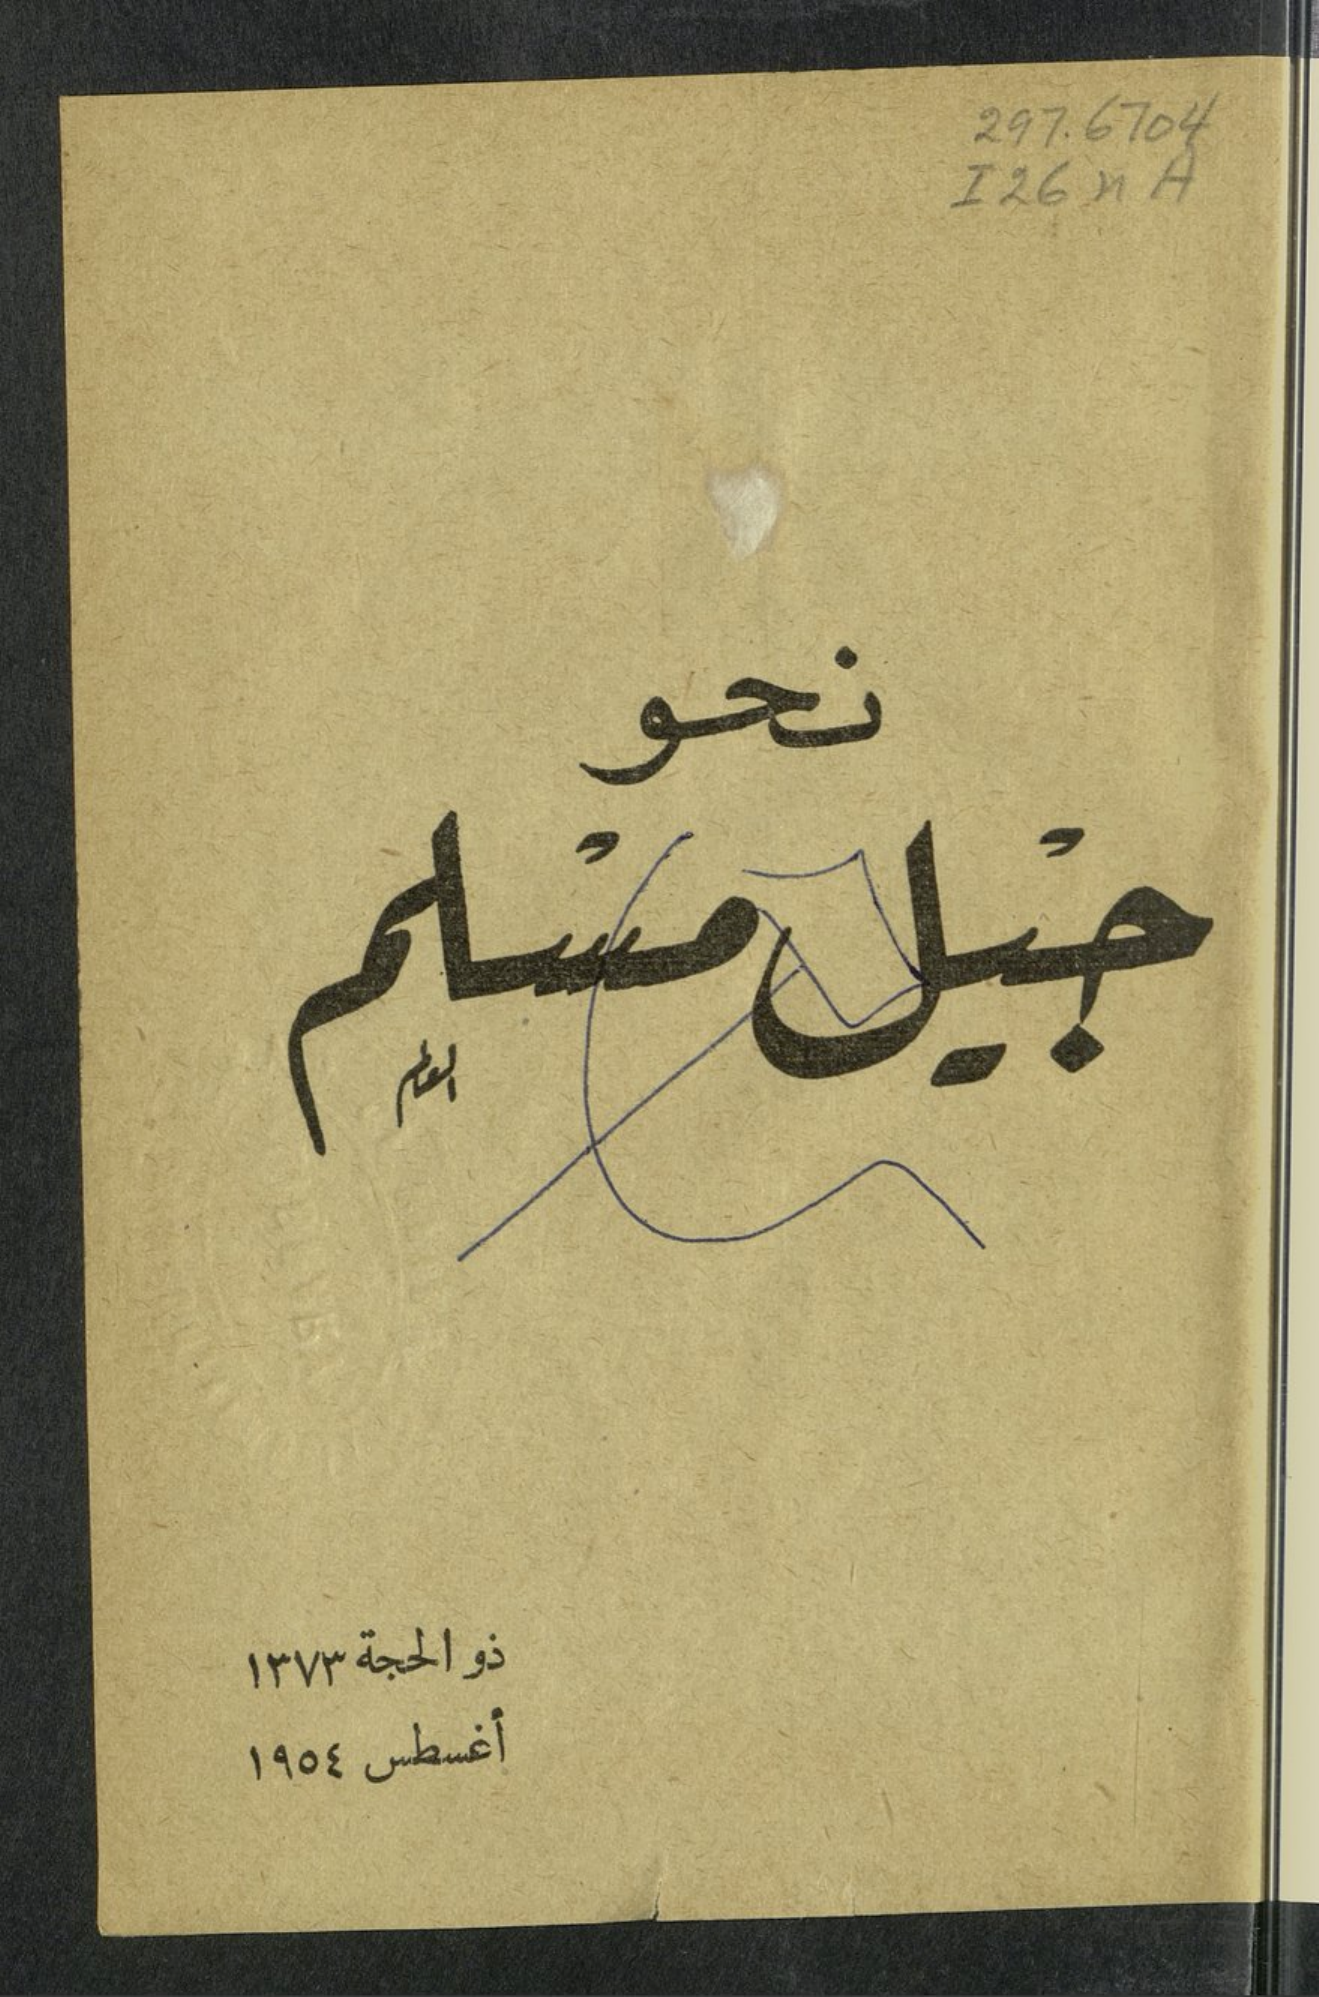 297.6704
I26nA
نحو
جيل مسلم
ذو الحجة ١٣٧٣
أغسطس ١٩٥٤